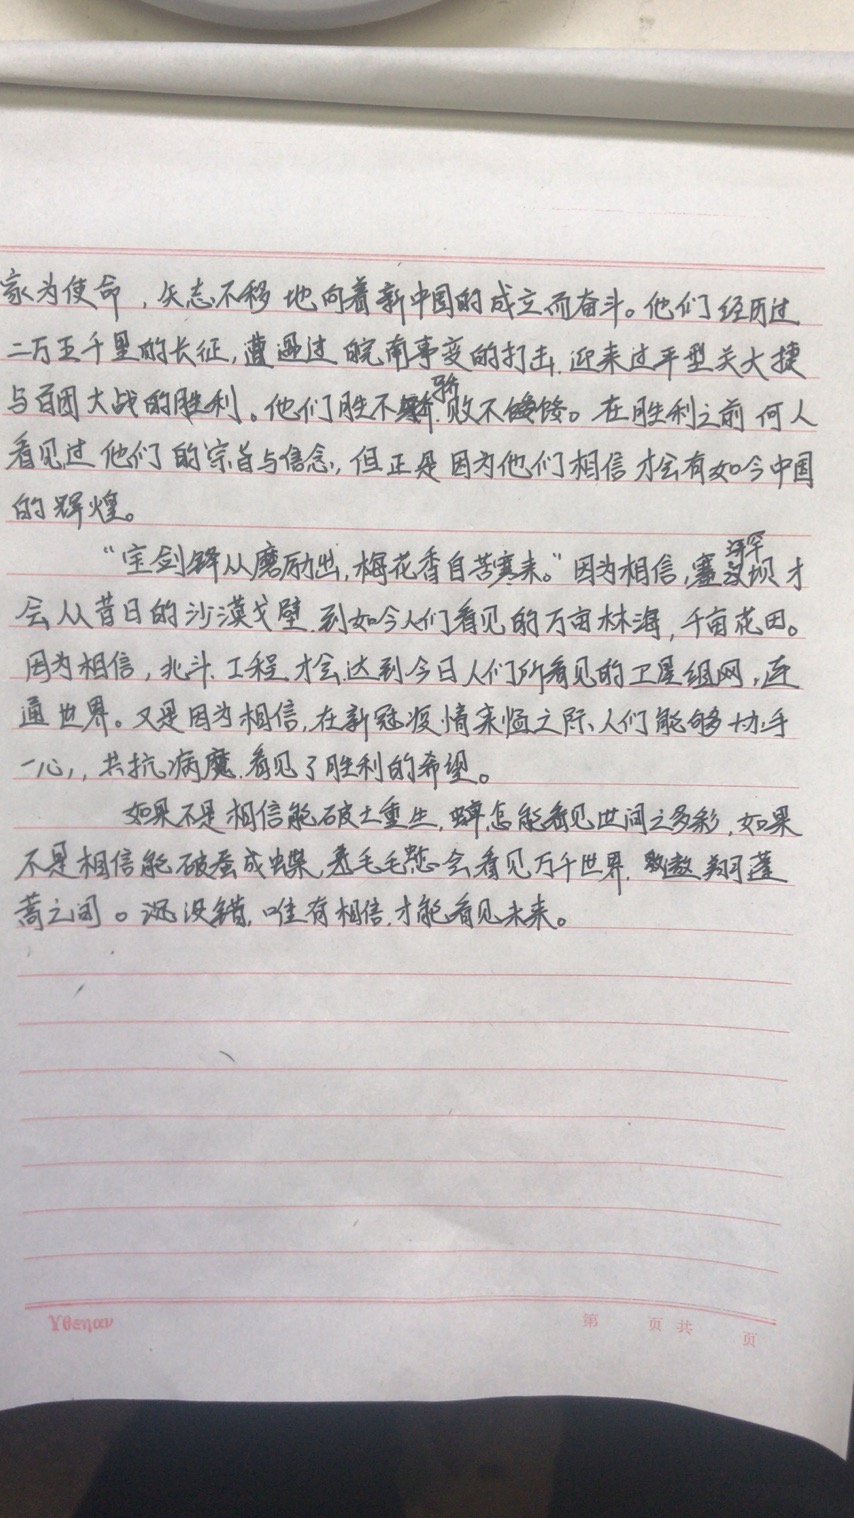 家为使命，矢志不移地向着新中国的成立而奋斗。他们经历过
二万五千里的长征，遭遇过皖南事变的打击，迎来过平型关大捷
与百团大战的胜利。他们胜不骄，败不馁。在胜利之前何人
看见过他们的宗旨与信念，但正是因为他们相信才会有如今中国
的辉煌。
“宝剑锋从磨励出，梅花香自苦寒来。”因为相信，塞罕坝才
会从昔日的沙漠戈壁到如今人们看见的万亩林海，千亩花田。
因为相信，北斗工程才会达到今日人们所看见的卫星组网，连
通世界。又是因为相信，在新冠疫情来临之际、人们能够协手
一心，共抗病魔，看见了胜利的希望。
如果不是相信能破土重生，蝉怎能看见世间之多彩，如果
不是相信能破茧成蝶，毛毛怎会看见万千世界，翱翔蓬
蒿之间。没错，唯有相信，才能看见未来。
Yθεηαν
第 页 共 页